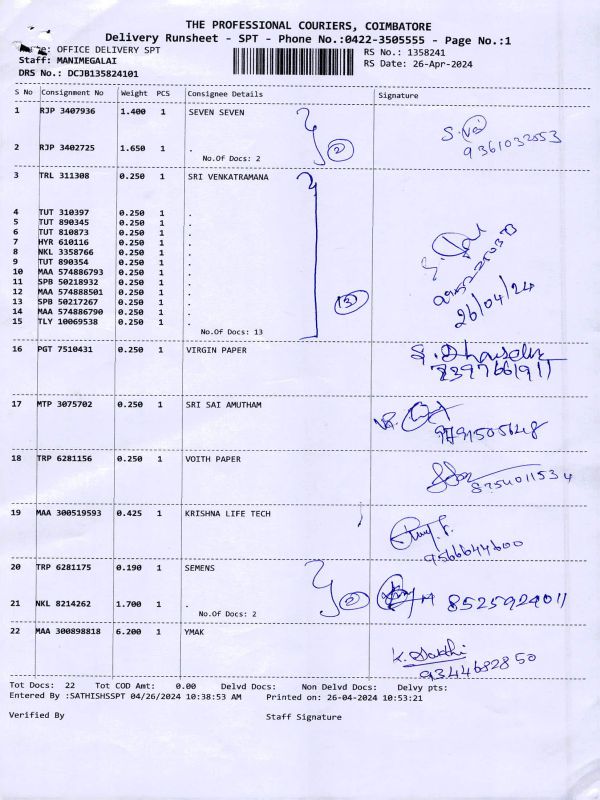 THE PROFESSIONAL COURIERS, COIMBATORE
Delivery Runsheet - SPT - Phone No.:0422-3505555 - Page No.:1
OFFICE DELIVERY SPT
RS No.: 1358241
Staff: MANIMEGALAI
RS Date: 26-Apr-2024
DRS No.: DCJB135824101
S No Consignment No Weight PCS Consignee Details Signature
1 RJP 3407936 1.400 1 SEVEN SEVEN
9361032053
2 RJP 3402725 1.650 1 .
No.Of Docs: 2 2
3 TRL 311308 0.250 1 SRI VENKATRAMANA
4 TUT 310397 0.250 1 .
5 TUT 890345 0.250 1 .
6 TUT 810873 0.250 1 .
7 HYR 610116 0.250 1 .
8 NKL 3358766 0.250 1 .
9 TUT 890354 0.250 1 .
10 MAA 574886793 0.250 1 .
11 SPB 50218932 0.250 1 .
12 MAA 574888501 0.250 1 .
13 SPB 50217267 0.250 1 . 13
14 MAA 574886790 0.250 1 .
26/04/24
15 TLY 10069538 0.250 1 .
No.Of Docs: 13
16 PGT 7510431 0.250 1 VIRGIN PAPER
17 MTP 3075702 0.250 1 SRI SAI AMUTHAM
18 TRP 6281156 0.250 1 VOITH PAPER
8754011534
19 MAA 300519593 0.425 1 KRISHNA LIFE TECH
9566644600
20 TRP 6281175 0.190 1 SEMENS
21 NKL 8214262 1.700 1 . 2 M 8525924011
No.Of Docs: 2
22 MAA 300898818 6.200 1 YMAK
K. Sakthi
9344682850
Tot Docs: 22 Tot COD Amt: 0.00 Delvd Docs: Non Delvd Docs: Delvy pts:
Entered By :SATHISHSSPT 04/26/2024 10:38:53 AM Printed on: 26-04-2024 10:53:21
Verified By Staff Signature